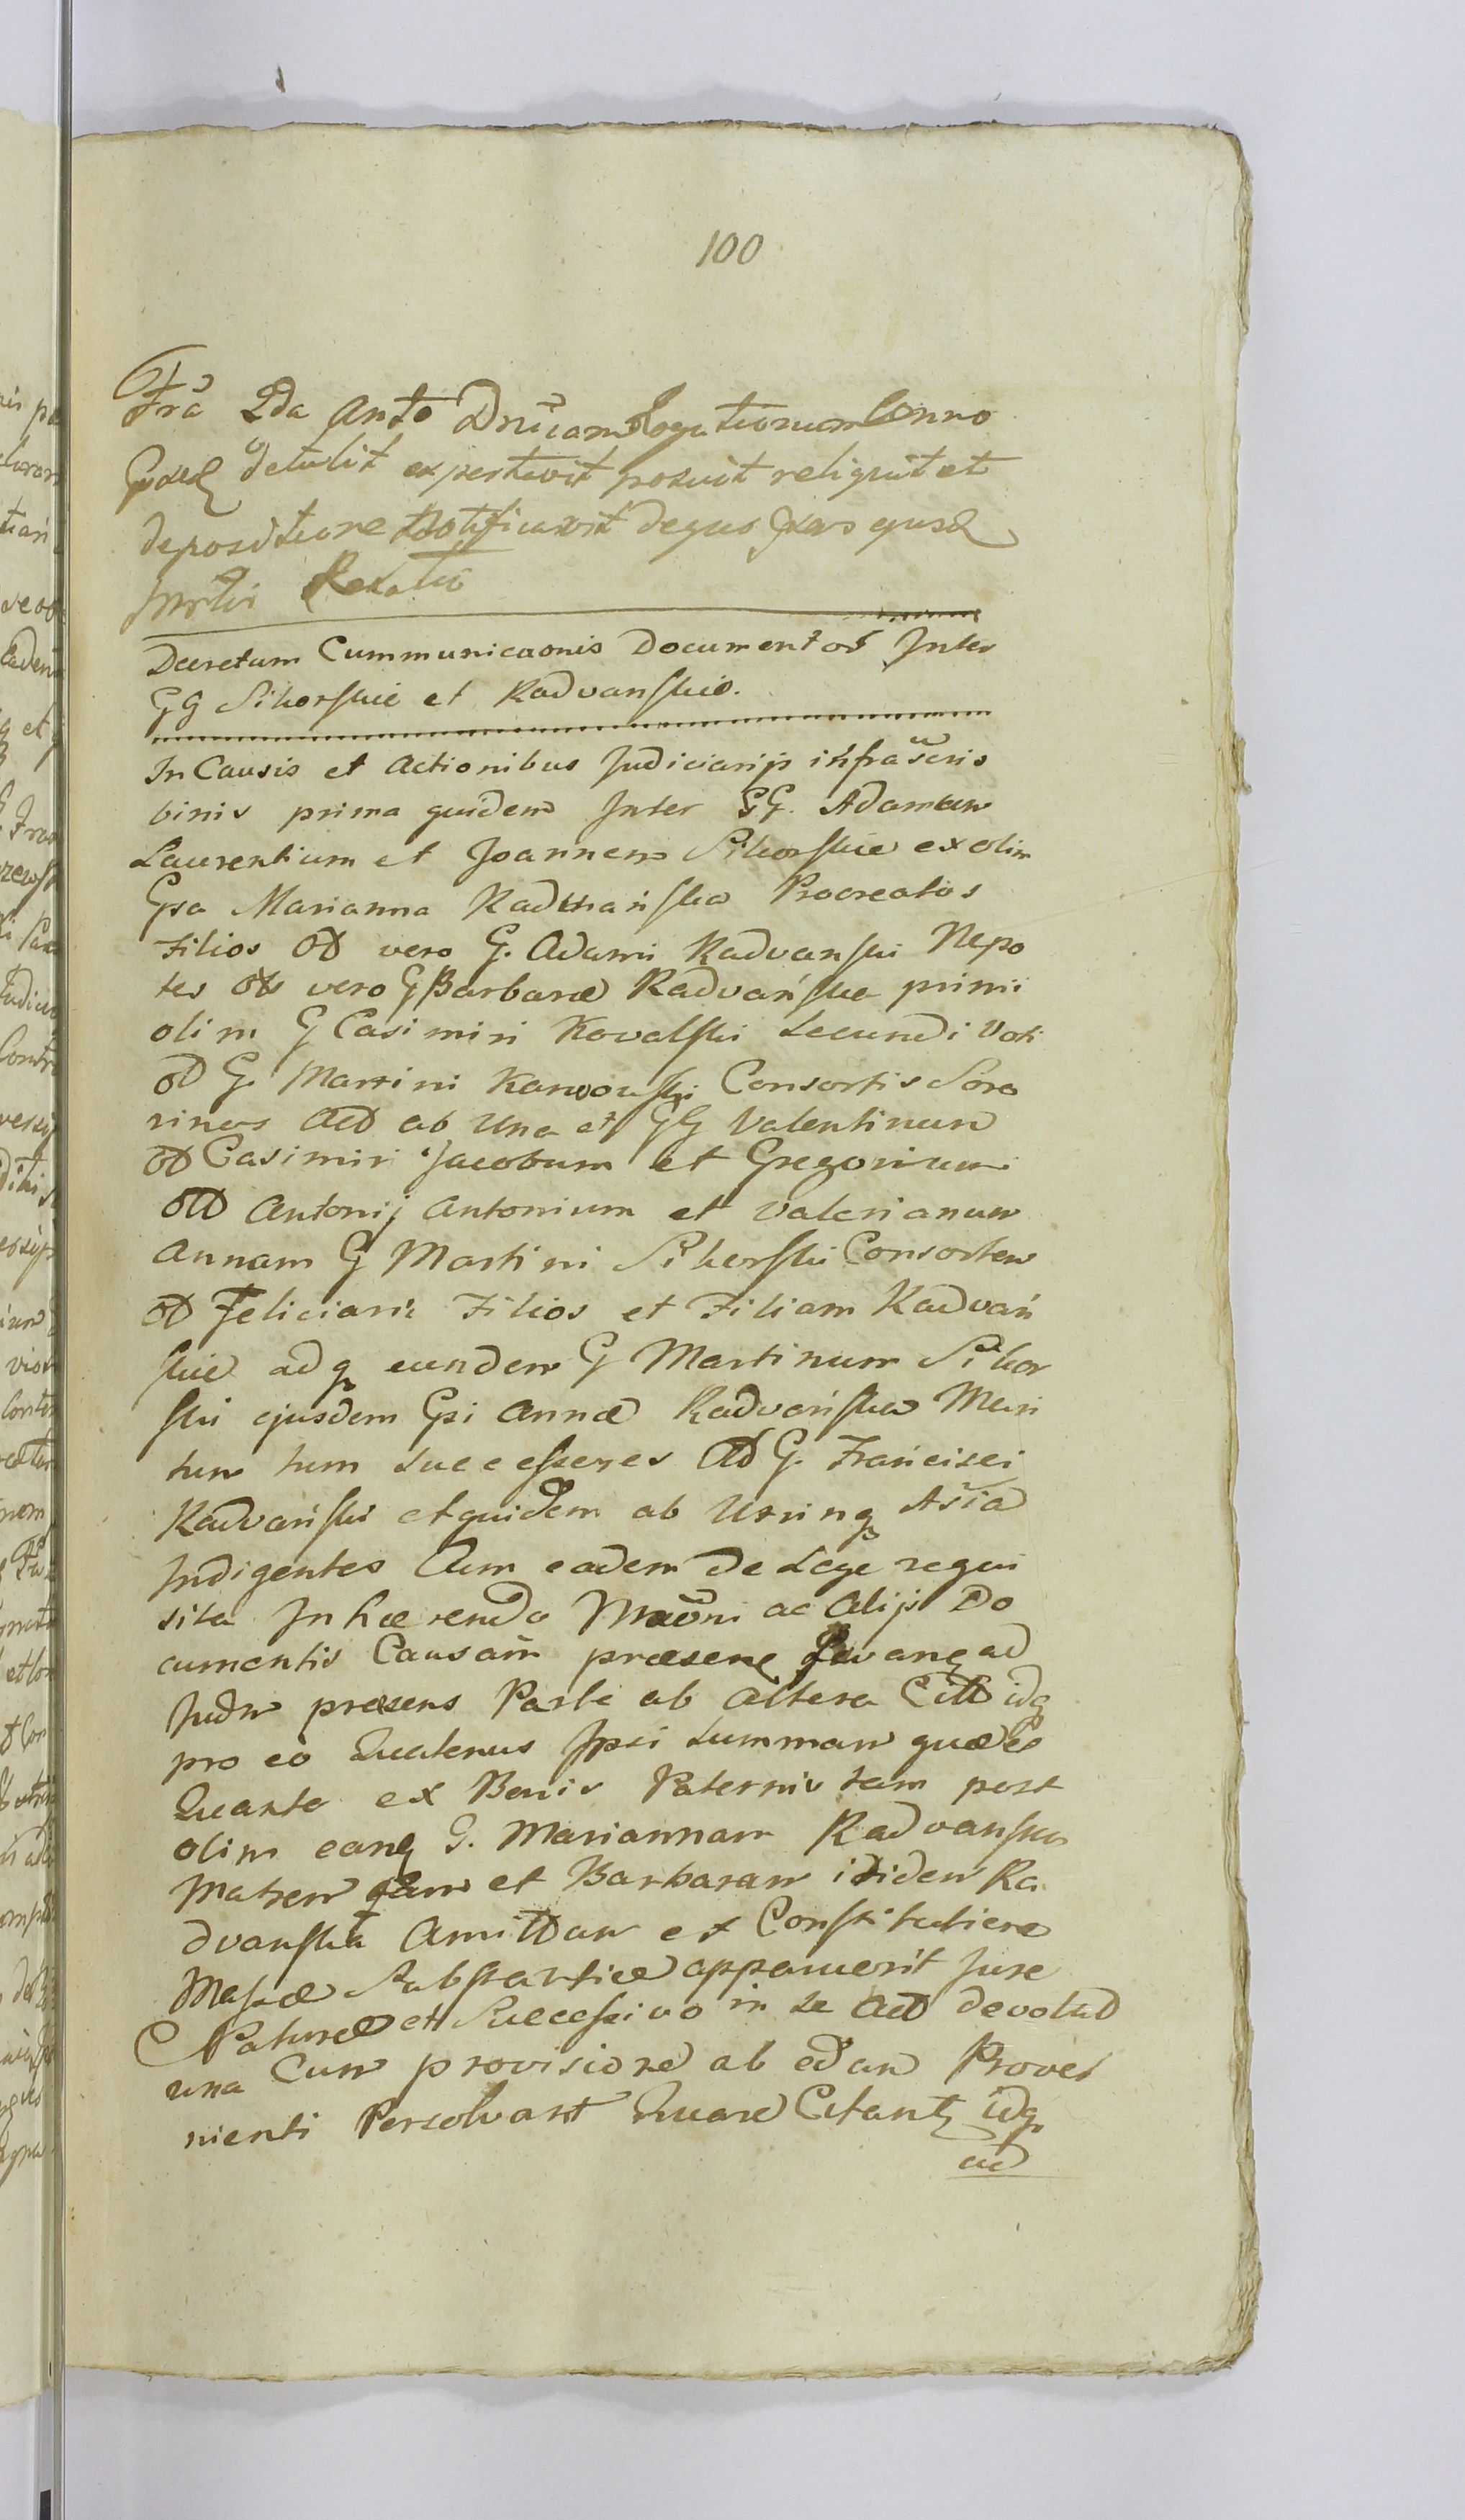 100
Fra 2da Anto Dnicam Rogationum Anno
detulit exportavit posuit reliquit et
depositione Notificavit deque
Relatio
Decretum Cummunicaonis Documentor Inter
GG Sikorskie et Radvanskie.
In Causis et Actionibus Judiciarijs infrascris
binis prima quidem Inter GG. Adamum
Laurentium et Joannem Sikorskie ex olim
Gsa Marianna Radwańska Procreatos
Filios OD vero G. Adami Radvanski Nepo
tes vero G Barbaræ Radvańska primi
olim G Casimiri Kovalski Secundi Voti
OD G. Martini Karwowski Consortis Soro
rinos ab Una et GG Valentinum
OD Casimiri Jacobum et Gregorium
Antonij Antonium et Valerianum
Annam G Martini Sikorski Consortem
OD Feliciani Filios et Filiam Radvań
skie adq eundem G Martinum Sikor
ski ejusdem Gsi Annæ Radvańska Mari
tum tum Successores G. Francisci
Radvański et quidem ab Utrinq Asia
Indigentes Cum eadem de Lege requi
sita Inhærendo ac Alijs Do
cumentis Causam præsen ad
Judm præsens Parte ab Altera idq
pro eo Quatenus Ipsi Summam quæ
Quanta ex Bonis Paternis tam post
olim eanq G. Mariannam Radvanska
Matrem qam et Barbaram itidem Ra
dvanska Amittam ex Constitutione
Massæ Substantiæ apparuerit Jure
Naturæ et Successivo in se devolut
una Cum provisione ab Prove
nienti Persolvant Quare Citant idq
ad